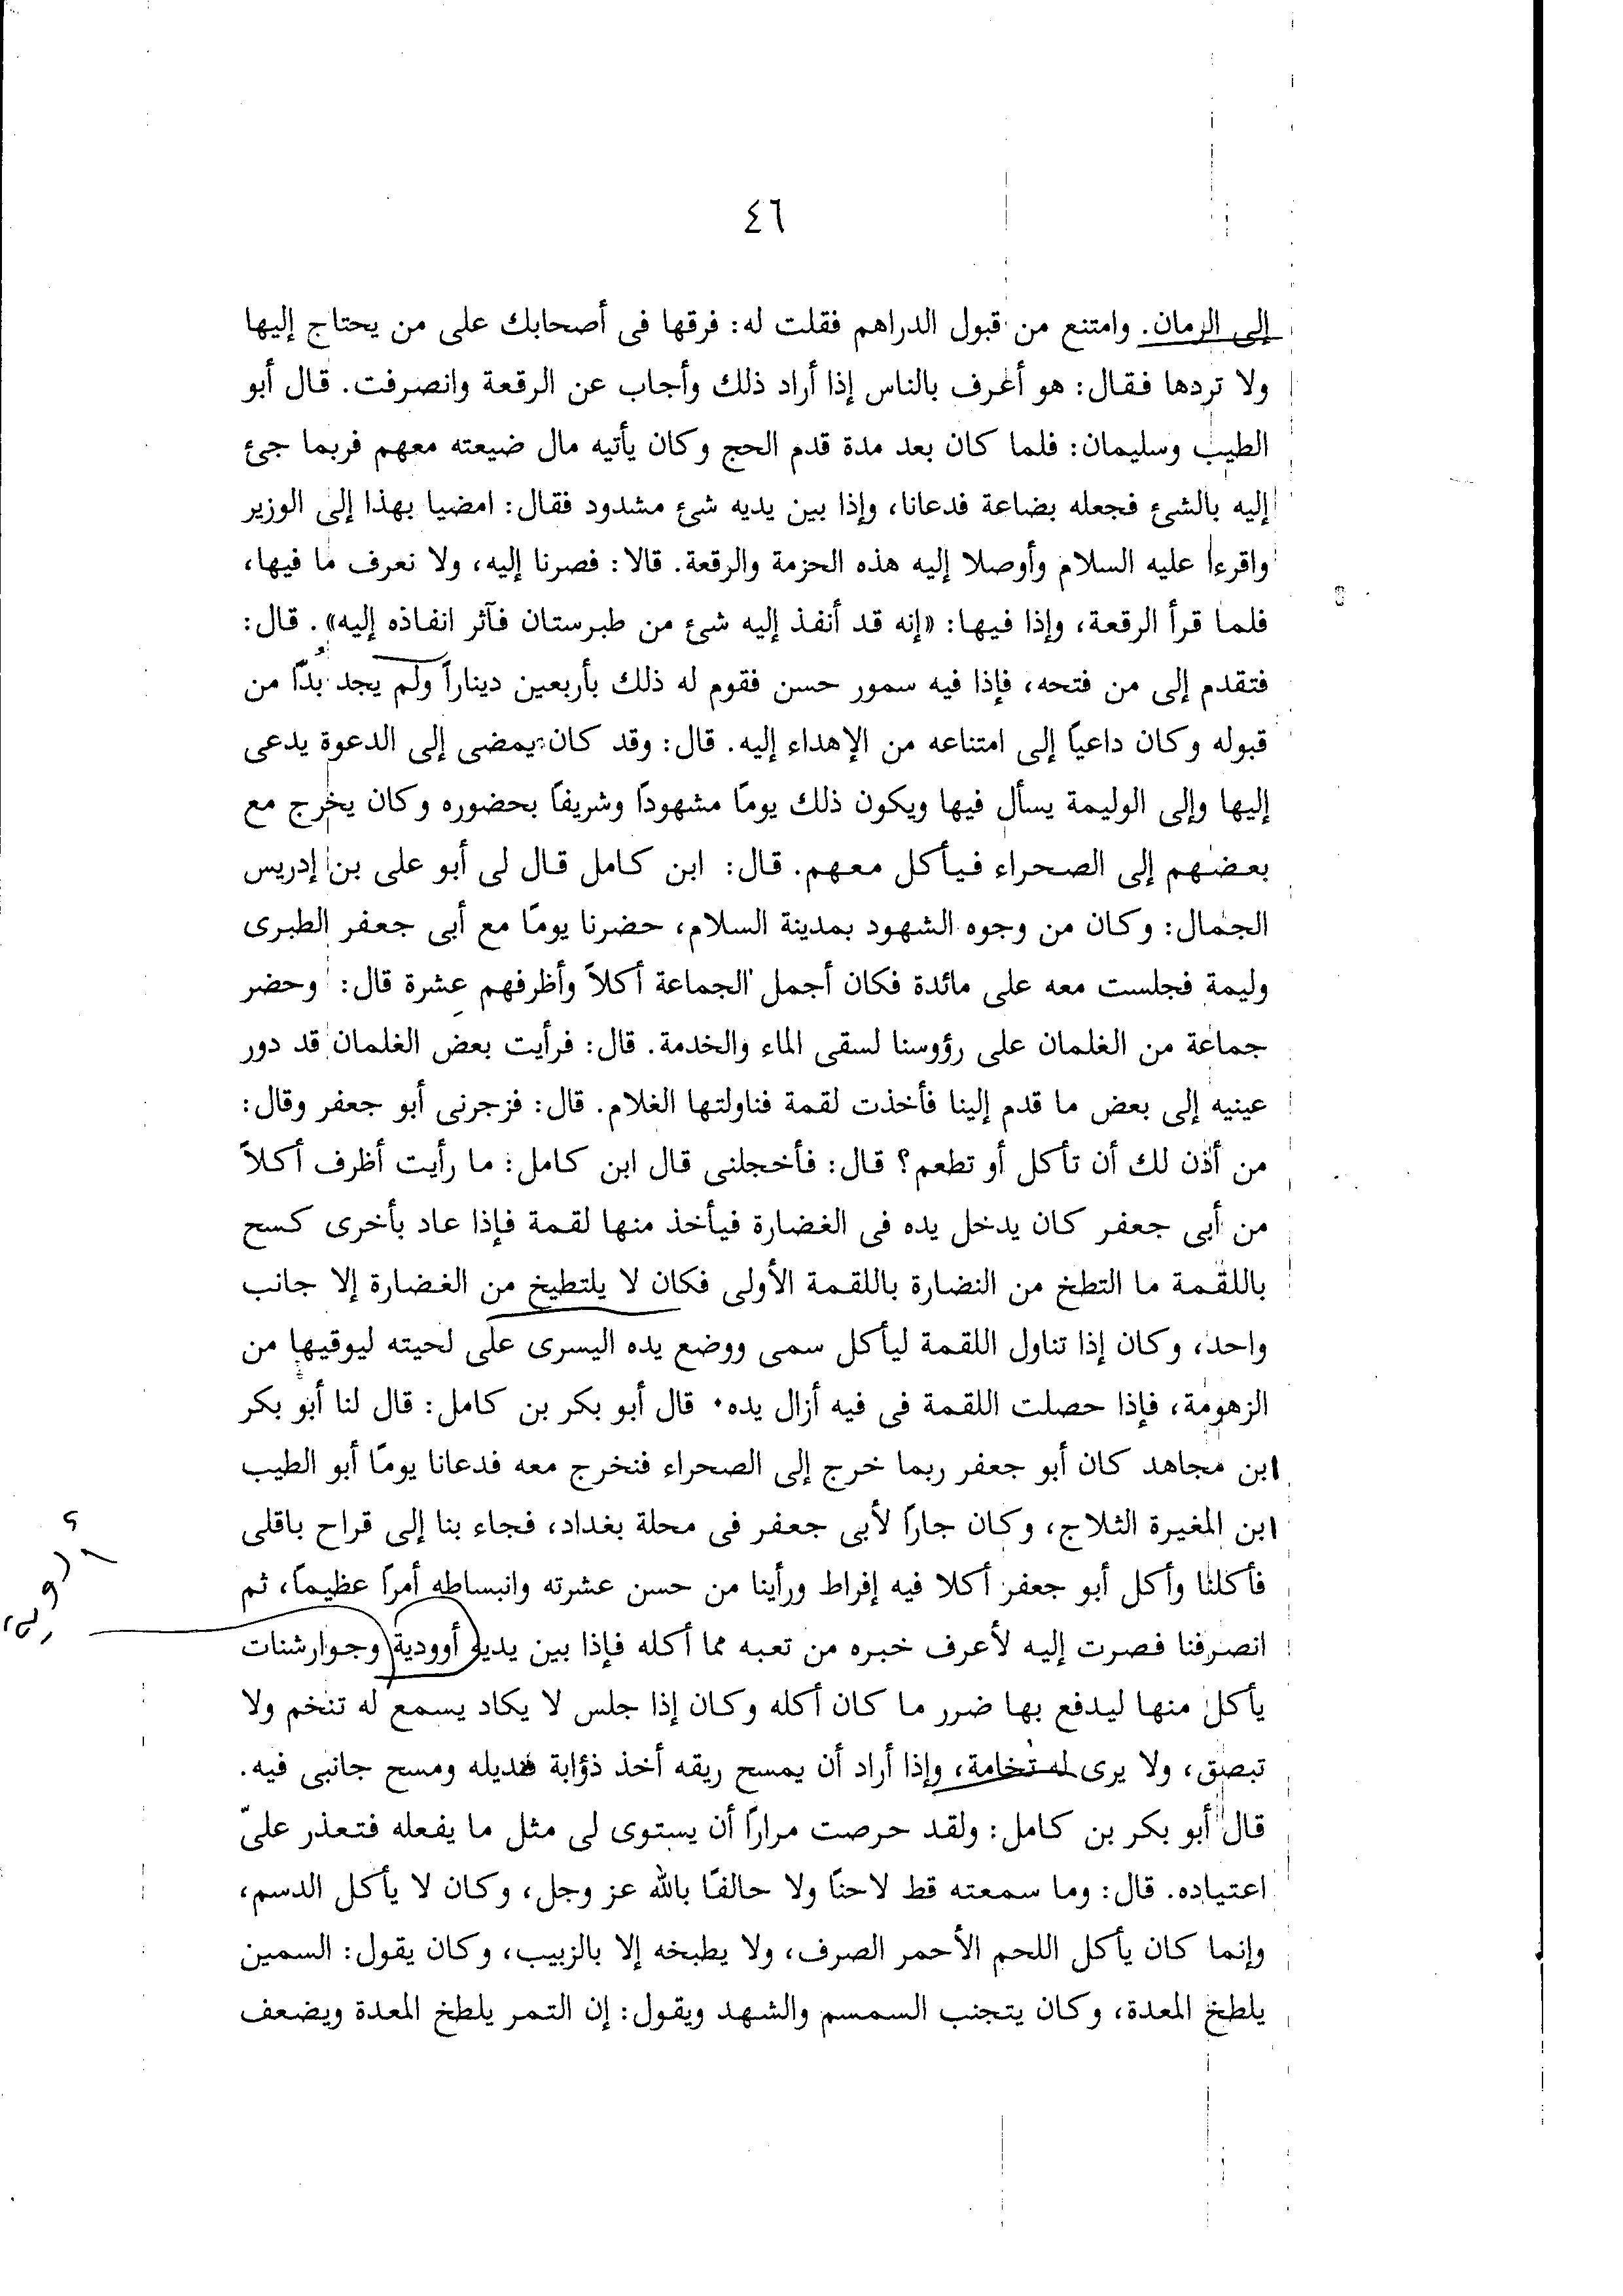 ٤٦
إلى الرمان. وامتنع من قبول الدراهم فقلت له: فرقها فى أصحابك على من يحتاج إليها
ولا تردها فقال: هو أعرف بالناس إذا أراد ذلك وأجاب عن الرقعة وانصرفت. قال أبو
الطيب وسليمان: فلما كان بعد مدة قدم الحج وكان يأتيه مال ضيعته معهم فربما جئ
إليه بالشئ فجعله بضاعة فدعانا، وإذا بين يديه شئ مشدود فقال: امضيا بهذا إلى الوزير
واقرءا عليه السلام وأوصلا إليه هذه الحزمة والرقعة. قالا: فصرنا إليه، ولا نعرف ما فيها،
فلما قرأ الرقعة، وإذا فيها: «إنه قد أنفذ إليه شئ من طبرستان فآثر انفاذه إليه». قال:
فتقدم إلى من فتحه، فإذا فيه سمور حسن فقوم له ذلك بأربعين ديناراً ولم يجد بُدّاً من
قبوله وكان داعياً إلى امتناعه من الإهداء إليه. قال: وقد كان يمضى إلى الدعوة يدعى
إليها وإلى الوليمة يسأل فيها ويكون ذلك يوماً مشهوداً وشريفاً بحضوره وكان يخرج مع
بعضهم إلى الصحراء فيأكل معهم. قال: ابن كامل قال لى أبو على بن إدريس
الجمال: وكان من وجوه الشهود بمدينة السلام، حضرنا يومًا مع أبى جعفر الطبرى
وليمة فجلست معه على مائدة فكان أجمل الجماعة أكلاً وأظرفهم عشرة قال: وحضر
جماعة من الغلمان على رؤوسنا لسقى الماء والخدمة. قال: فرأيت بعض الغلمان قد دور
عينيه إلى بعض ما قدم إلينا فأخذت لقمة فناولتها الغلام. قال: فزجرنى أبو جعفر وقال:
من أذن لك أن تأكل أو تطعم؟ قال: فأخجلنى قال ابن كامل: ما رأيت أظرف أكلاً
من أبى جعفر كان يدخل يده فى الغضارة فيأخذ منها لقمة فإذا عاد بأخرى كسح
باللقمة ما التطخ من النضارة باللقمة الأولى فكان لا يلتطيخ من الغضارة إلا جانب
واحد، وكان إذا تناول اللقمة ليأكل سمى ووضع يده اليسرى على لحيته ليوقيها من
الزهومة، فإذا حصلت اللقمة فى فيه أزال يده. قال أبو بكر بن كامل: قال لنا أبو بكر
ابن مجاهد كان أبو جعفر ربما خرج إلى الصحراء فنخرج معه فدعانا يومًا أبو الطيب
ابن المغيرة الثلاج، وكان جاراً لأبى جعفر فى محلة بغداد، فجاء بنا إلى قراح باقلى
فأكلنا وأكل أبو جعفر أكلا فيه إفراط ورأينا من حسن عشرته وانبساطه أمراً عظيماً، ثم
انصرفنا فصرت إليه لأعرف خبره من تعبه مما أكله فإذا بين يديه أوودية وجوارشنات
يأكل منها ليدفع بها ضرر ما كان أكله وكان إذا جلس لا يكاد يسمع له تنخم ولا
تبصق، ولا يرى له تخامة، وإذا أراد أن يمسح ريقه أخذ ذؤابة منديله ومسح جانبى فيه.
قال أبو بكر بن كامل: ولقد حرصت مراراً أن يستوى لى مثل ما يفعله فتعذر علىّ
اعتياده. قال: وما سمعته قط لاحنًا ولا حالفًا بالله عز وجل، وكان لا يأكل الدسم،
وإنما كان يأكل اللحم الأحمر الصرف، ولا يطبخه إلا بالزبيب، وكان يقول: السمين
يلطخ المعدة، وكان يتجنب السمسم والشهد ويقول: إن التمر يلطخ المعدة ويضعف